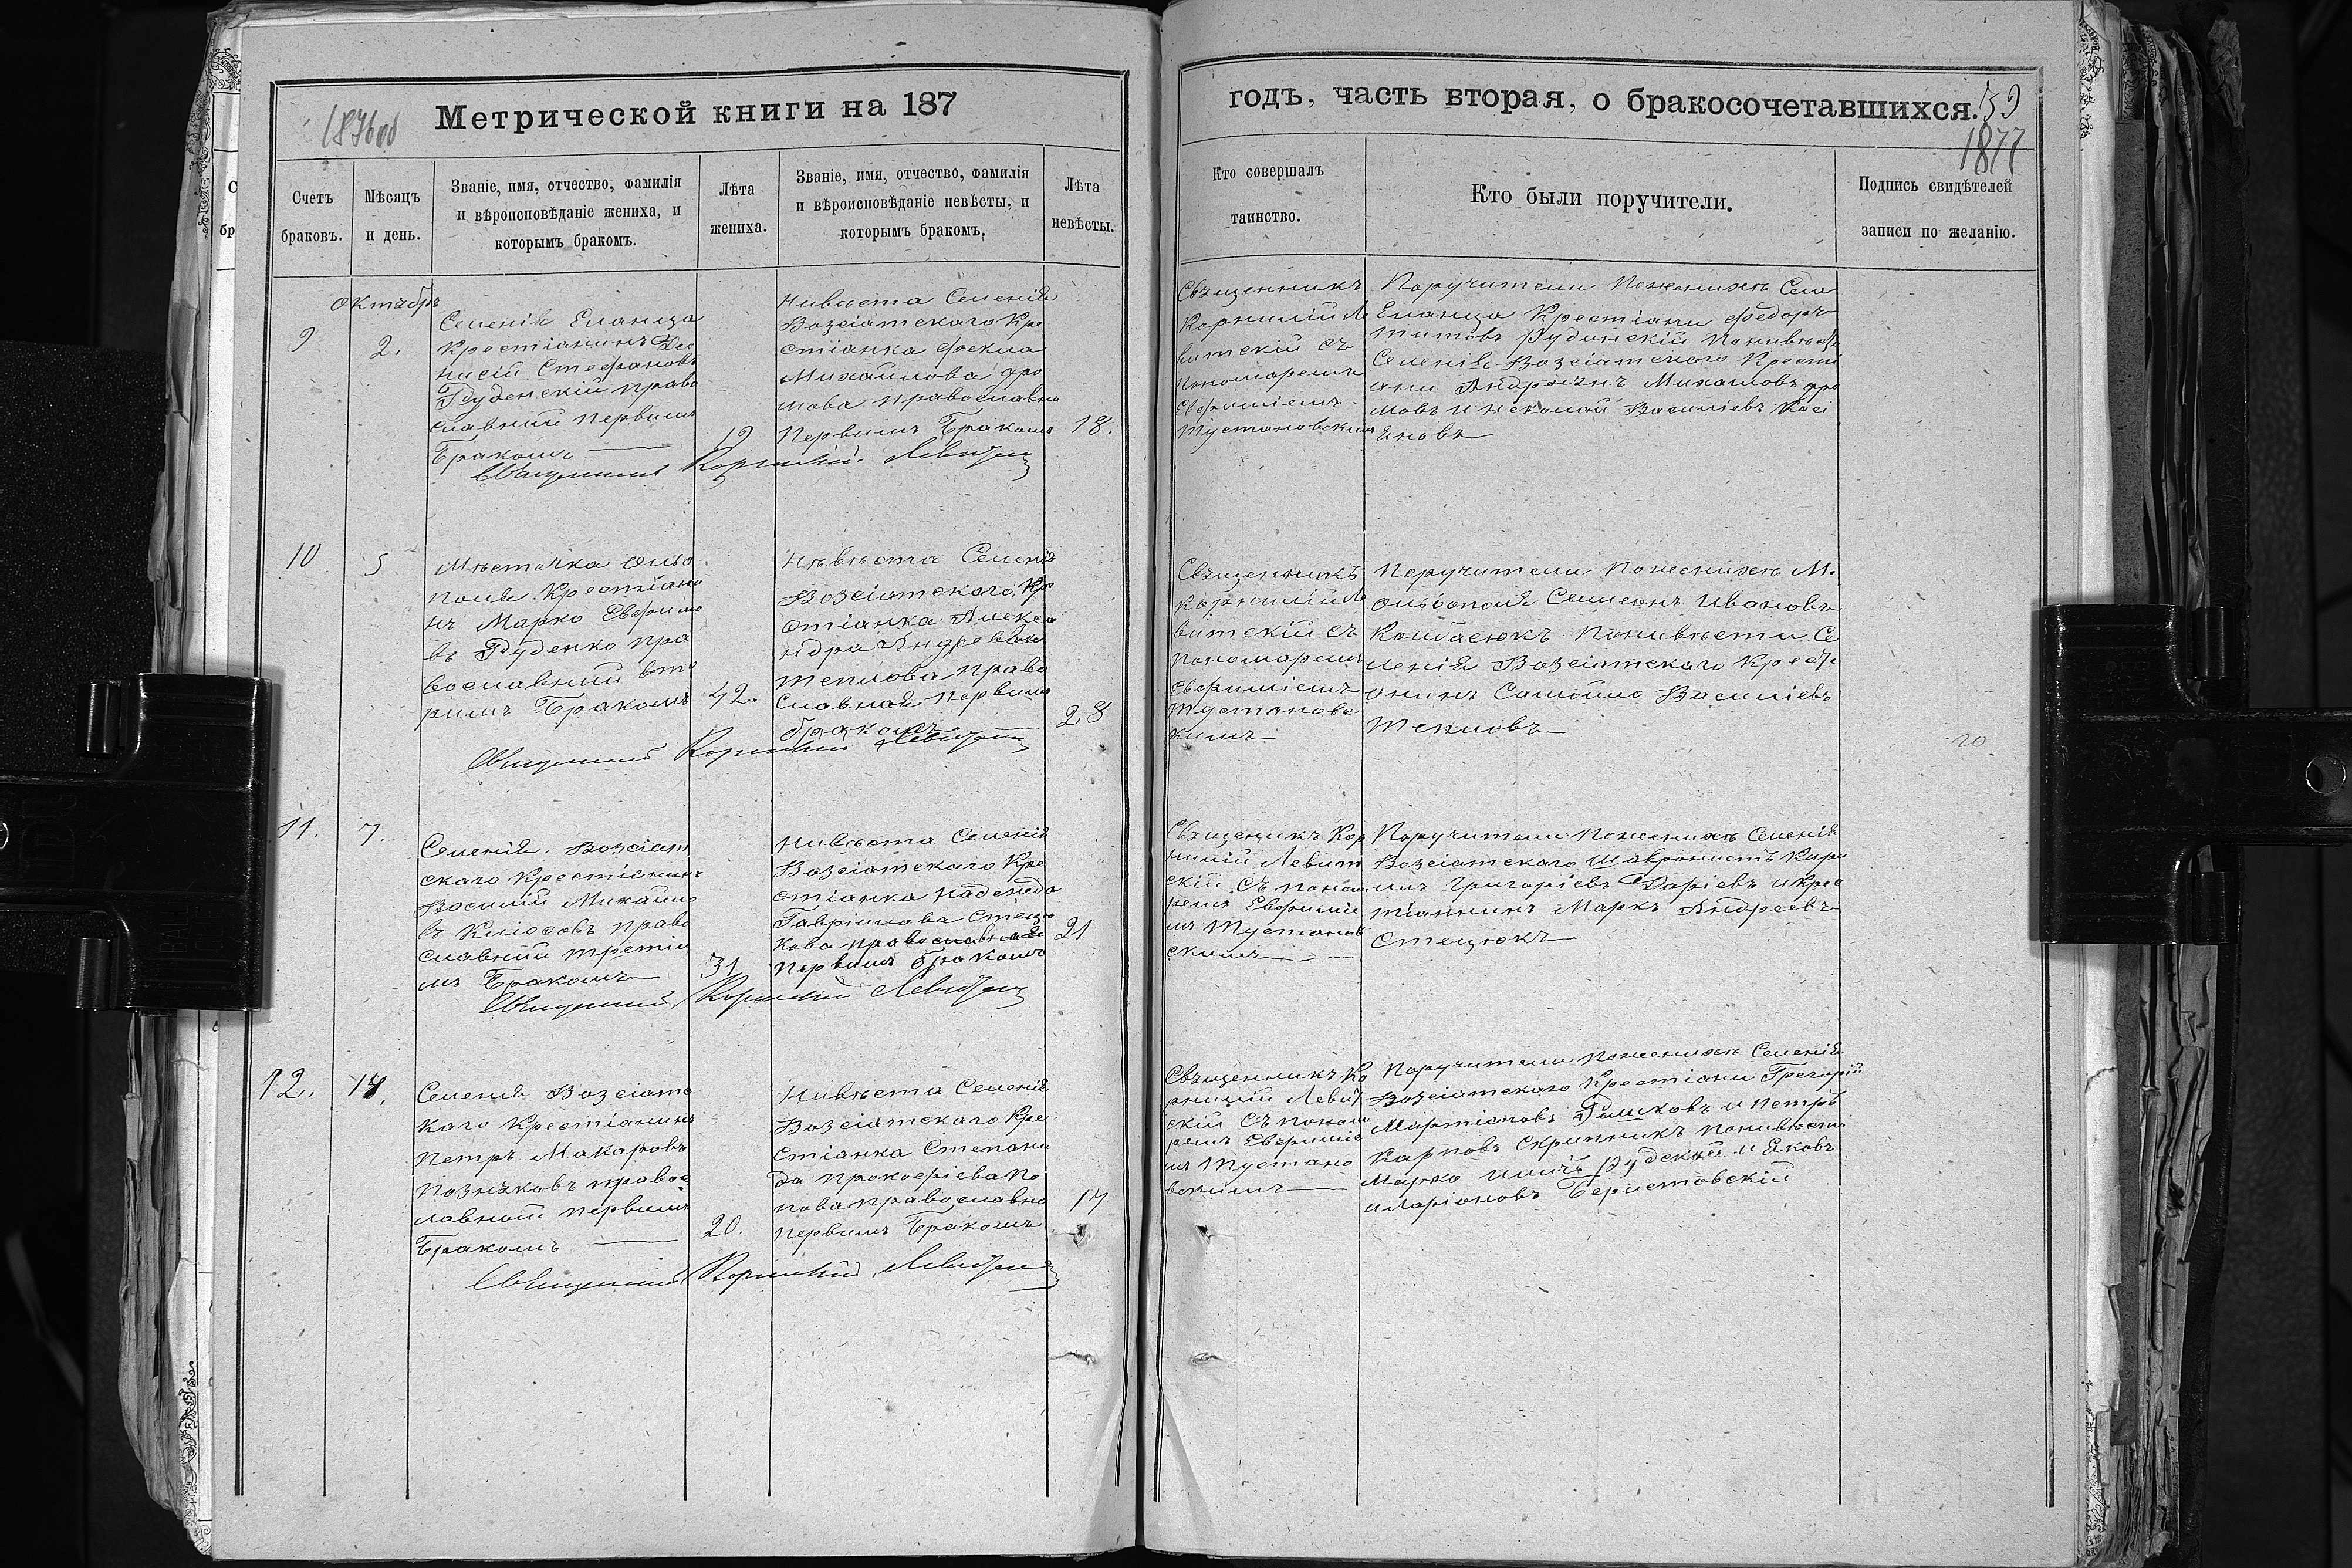 Метрической книги на 187
годъ, часть вторая, о бракосочетавшихся.
59
1877
Счетъ
браковъ.
Мѣсяцъ
и день.
Званіе, имя, отчество, фамилія
и вѣроисповѣданіе жениха, и
которымъ бракомъ.
Лѣта
жениха.
Званіе, имя, отчество, фамилія
и вѣроисповѣданіе невѣсты, и
которымъ бракомъ.
Лѣта
невѣсты.
Кто совершалъ
таинство.
Кто были поручители.
Подпись свидѣтелей
записи по желанію.
9
октябрь
2.
Селенія Еланца
Крестіанинъ Део
нисій Стефановъ
Руденскій право
славний первимъ
Бракомъ
19
Нивѣста Селенія
Возсіатскаго Кре
стіанка Фекла
Михайлова Фро
лова православна
первимъ Бракомъ
18.
Священникъ Корнилій Левитскій
Свъщенникъ
Корнилій Ле
витскій съ
Пономаремъ
Евфиміемъ
Тустановскимъ
Поручители Поженихѣ Села
Еланца Крестіани Федоръ
Титовъ Рудинскій Понивѣстѣ
Селенія Возсіатского Крести
ани Андріянъ Михаиловъ Фро
ловъ и Неколай Василіевъ Касі
яновъ
10
5
Мѣстечка Ольо
поля Крестіани
нъ Марко Евфимо
въ Руденко пра
вославний вто
римъ Бракомъ
42.
Нѣвѣста Селенія
Возсіатскаго Кре
стіанка Алекса
ндра Андреева
теплова право
славная первимъ
бракомъ
28
Священникъ Корнилій Левитскій
Свъщенникъ
Корнилій Ле
витскій съ
Пономаремъ
Евфиміемъ
Тустановс
кимъ
Поручители Поженихѣ М.
Ольвополя Семеонъ Ивановъ
Колбасюкъ Понивѣсти Се
ленія Возсіатскаго Крест
анинъ Самойло Василіевъ
Текловъ
20
11.
7.
Селенія Возсіат
скаго Крестіанинъ
Василій Михайло
въ Клюсовъ право
славний третім
мъ Бракомъ
31
Нивѣста Селенія
Возсіатскаго Кре
стіанка Надежда
Гавріилова Стецю
кова православная
первимъ бракомъ
21
Священникъ Корнилій Левитскій
Свъщеникъ Кор
нилій Левит
скій съ поном
ремъ Евфиміе
мъ Тустанов
скимъ
Поручители Поженихѣ Селенія
Возсіатскаго Кири
лъ Григоріевъ Даріевъ и Крес
тіанинъ Маркъ Андреевъ
Стецюкъ
12.
14.
Селенія Возсіатс
каго Крестіанинъ
Петръ Макаровъ
Познъковъ правос
лавной первимъ
Бракомъ
20.
Нивѣста Селенія
Возсіатскаго Кре
стіанка Степани
да Прокофіева По
пова православна
первимъ Бракомъ
17
Священникъ Корнилій Левитскій
Свъщенникъ Ко
рнилій Левит
скій съ поном
ремъ Евфиміе
мъ Тустано
вскимъ
Поручители Поженихѣ Селенія
Возсіатскаго Крестіани Грегорій
Мартіновъ и Петръ
Карповъ Скрипникъ Понивѣсти
Марко Рудской и Яковъ
Иларіоновъ Берестовскій